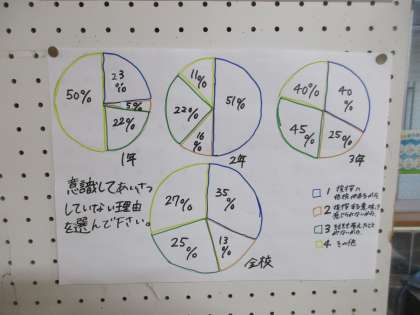 50%
23
%
5%
22%
1年
11%
51%
22%
16
%
2年
40%
40
%
45%
25%
3年
意識してあいさつ
していない理由
を選んで下さい。
27%
35
%
25%
13
%
全校
1 挨拶の
2 挨拶
3
4 その他